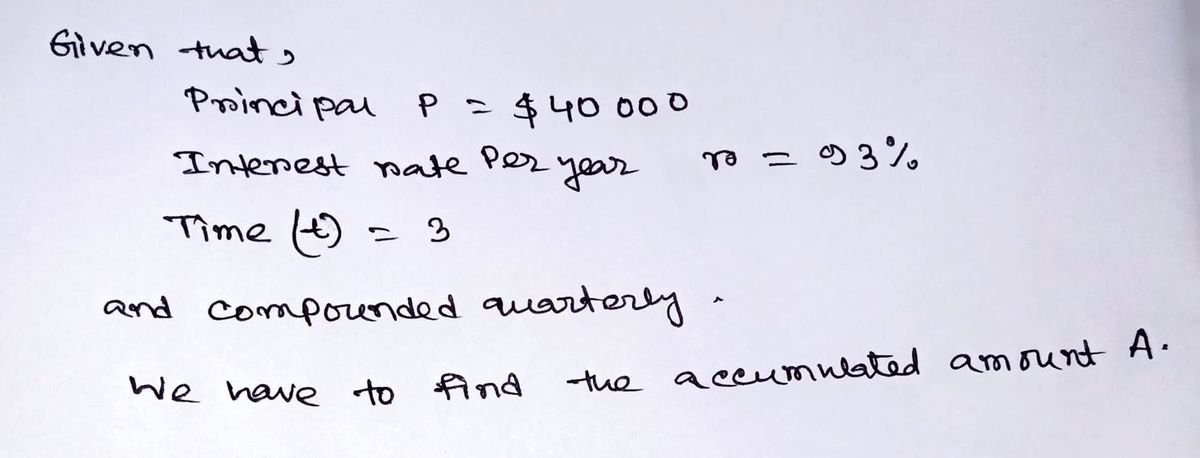 Given that,
Principal P = $40 000
Interest rate Per year r = 9 3%
Time (t) = 3
and compounded quarterly.
We have to find the accumulated amount A.